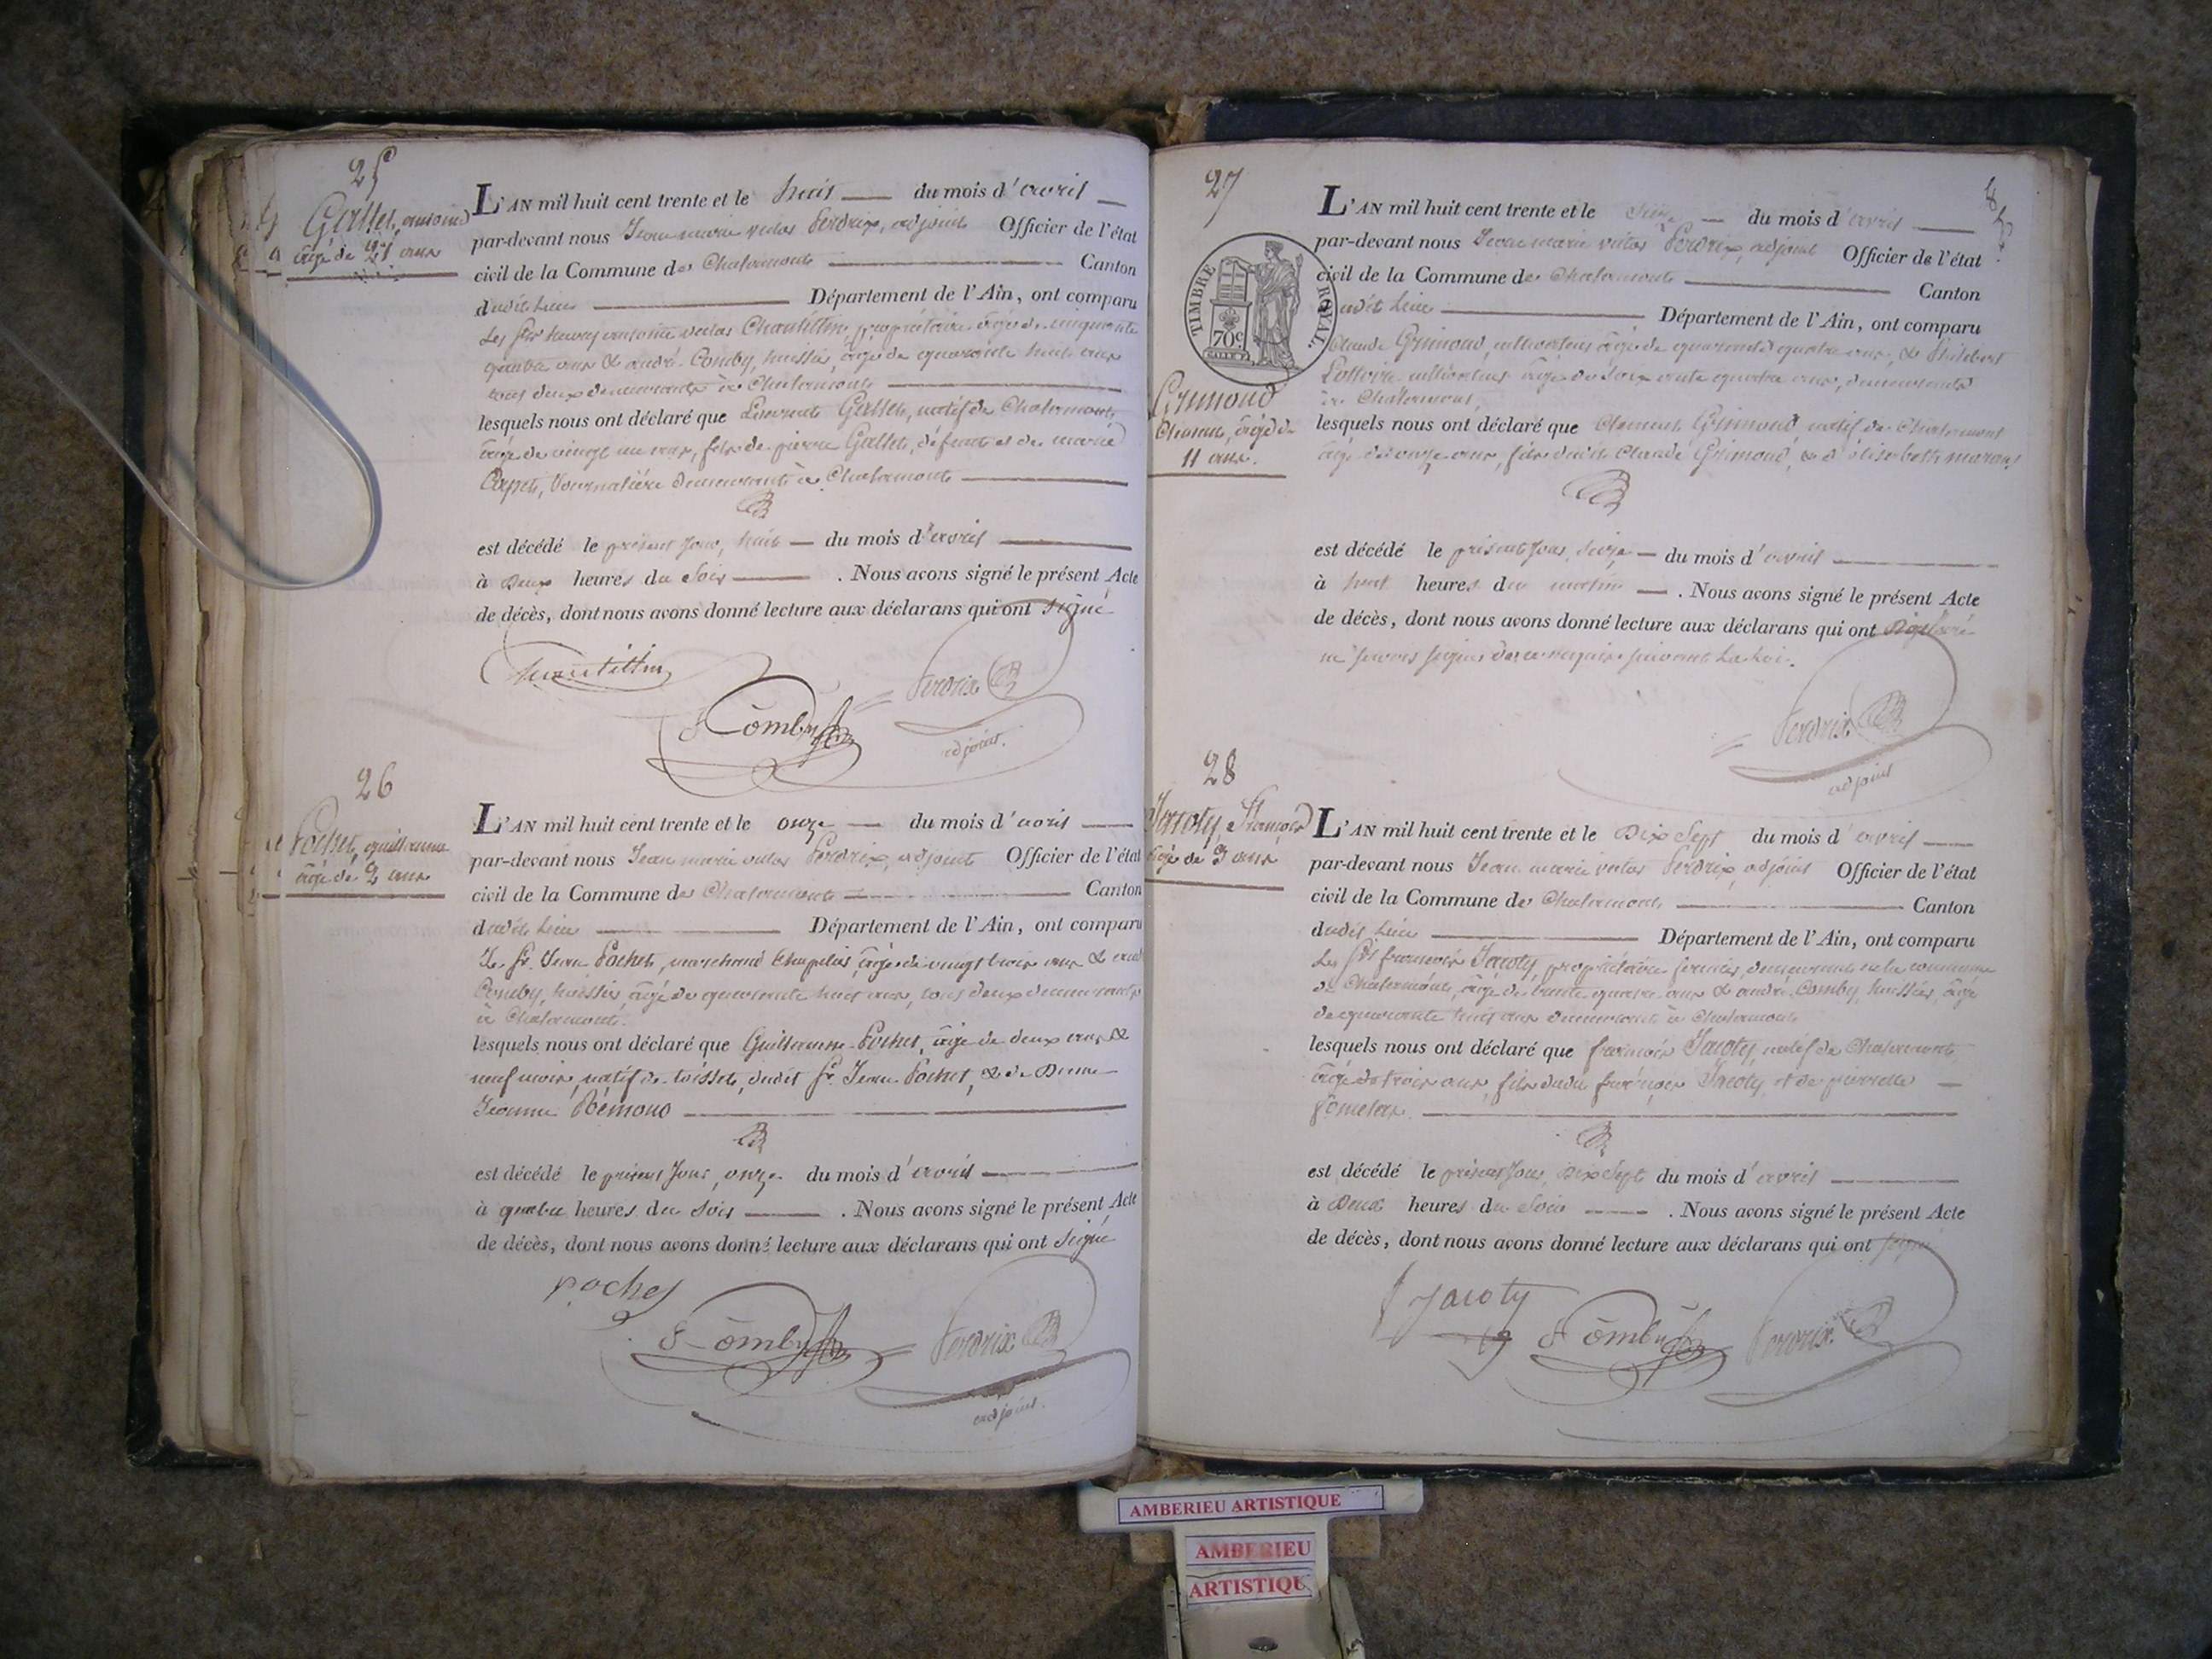 25
Gallet, antoine
âgé de 21 ans
L'AN mil huit cent trente et le huit du mois d'avril
par-devant nous Jean marie vital Perdrix, adjoint Officier de l'état
civil de la Commune de Chalamont Canton
dudit lieu Département de l'Ain, ont comparu
Les Srs antoine Chantillin, propriétaire âgé de cinquante
quatre ans & andré Comby, huissier, âgé de quarante huit ans
tous deux demeurants à Chalamont
lesquels nous ont déclaré que Gallet, natif de Chalamont,
âgé de vingt un ans, fils de pierre Gallet, défunt et de marie
journalière demeurante à Chalamont
est décédé le présent jour, huit du mois d'avril
à Deux heures du Soir . Nous avons signé le présent Acte
de décès, dont nous avons donné lecture aux déclarans qui ont signé
Comby
Perdrix
adjoint.
26
Pochet, guillaume
âgé de 2 ans
L'AN mil huit cent trente et le onze du mois d'avril
par-devant nous Jean marie vital Perdrix, adjoint Officier de l'état
civil de la Commune de Chalamont Canton
dudit lieu Département de l'Ain, ont comparu
Le Sr. Jean Pochet, marchand chapelier, âgé de vingt trois ans & andré
Comby, huissier, âgé de quarante huit ans, tous deux demeurants
à Chalamont.
lesquels nous ont déclaré que Guillaume Pochet, âgé de deux ans &
neuf mois, natif de toissey, dudit Sr. Jean Pochet, & de Dame
Jeanne Rémond
est décédé le présent jour, onze du mois d'avril
à quatre heures du Soir . Nous avons signé le présent Acte
de décès, dont nous avons donné lecture aux déclarans qui ont Signé
pochet
Comby
Perdrix
adjoint.
27
TIMBRE ROYAL.
70c
Grimoud
Clément, âgé de
11 ans.
L'AN mil huit cent trente et le seize du mois d'avril
par-devant nous Jean marie vital Perdrix, adjoint Officier de l'état
civil de la Commune de Chalamont Canton
dudit lieu Département de l'Ain, ont comparu
Claude Grimoud, cultivateur âgé de quarante quatre ans, & Philibert
cultivateur âgé de soixante quatre ans, demeurants
à Chalamont,
lesquels nous ont déclaré que Clément Grimoud, natif de Chalamont
âgé de onze ans, fils dudit Claude Grimoud, & d'élisabeth
est décédé le présent jour, seize du mois d'avril
à huit heures du matin . Nous avons signé le présent Acte
de décès, dont nous avons donné lecture aux déclarans qui ont Déclaré
ne savoir signer de ce requis suivant la loi.
Perdrix
adjoint
28
Jacoty, François
âgé de 3 ans
L'AN mil huit cent trente et le Dix Sept du mois d'avril
par-devant nous Jean marie vital Perdrix, adjoint Officier de l'état
civil de la Commune de Chalamont Canton
dudit lieu Département de l'Ain, ont comparu
Les Srs françois Jacoty, propriétaire fermier, demeurant en la commune
de Chalamont, âgé de trente quatre ans & andré Comby, huissier, âgé
de quarante huit ans demeurant à Chalamont
lesquels nous ont déclaré que françois Jacoty, natif de Chalamont,
âgé de trois ans, fils dudit françois Jacoty, et de pierrette
est décédé le présent jour, Dix Sept du mois d'avril
à Deux heures du Soir . Nous avons signé le présent Acte
de décès, dont nous avons donné lecture aux déclarans qui ont signé
Jacoty
Comby
Perdrix
AMBERIEU ARTISTIQUE
AMBERIEU
ARTISTIQU